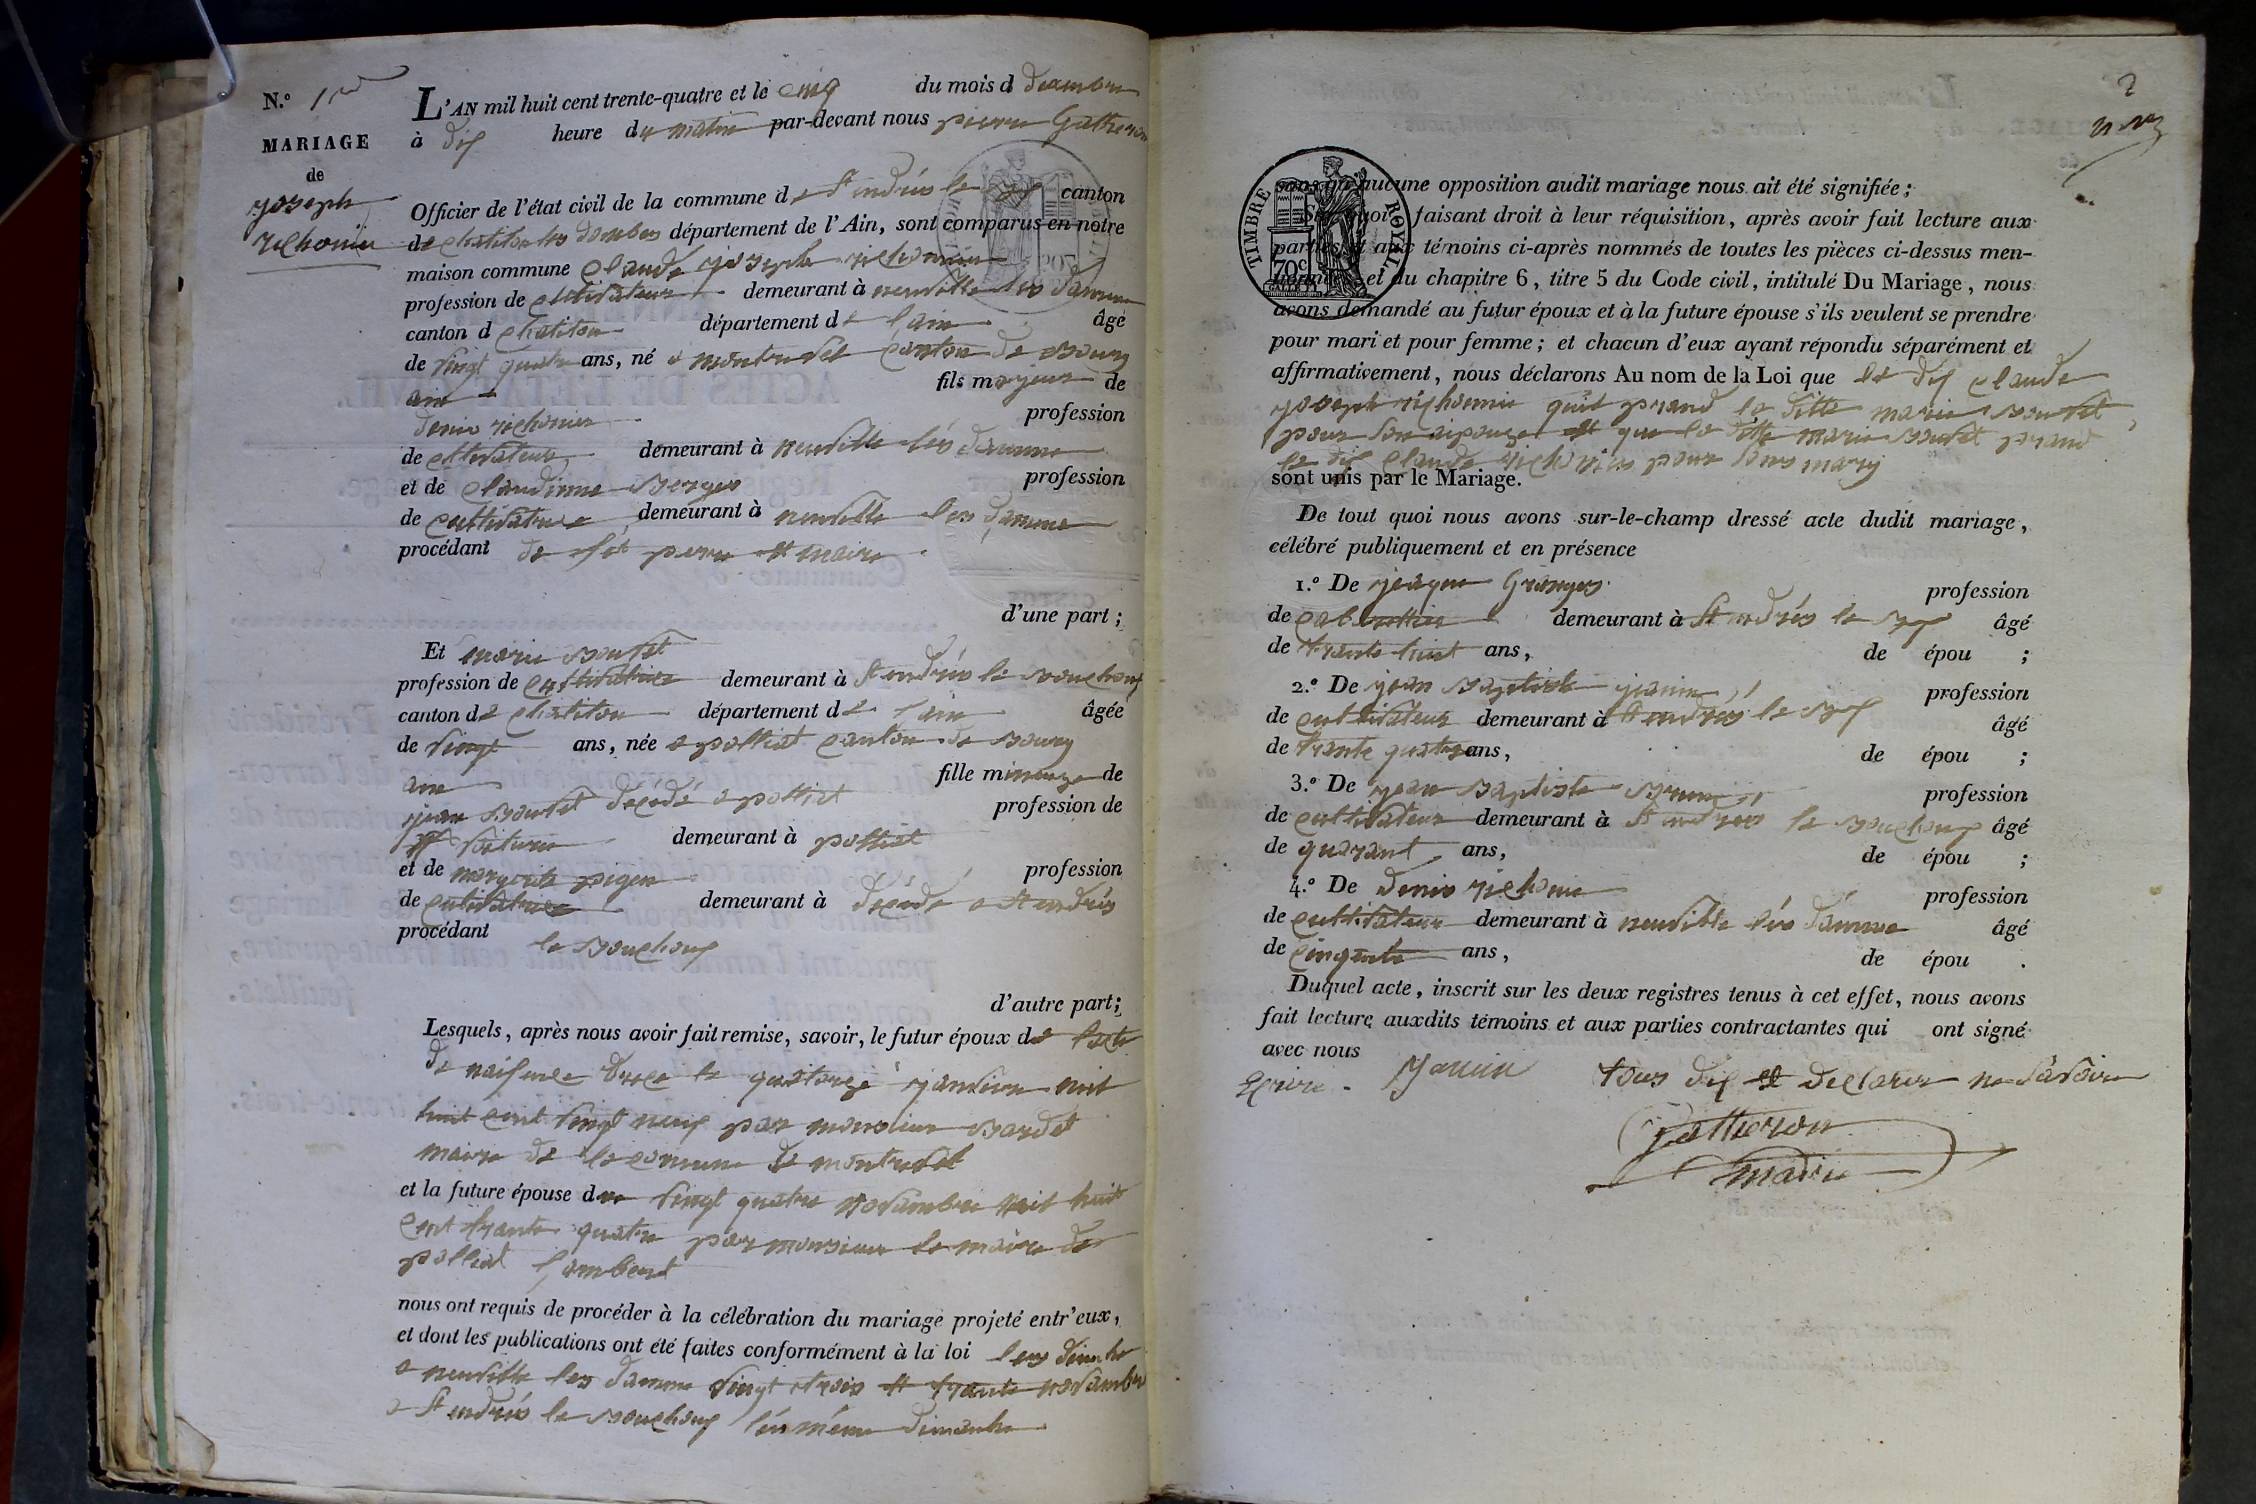 N.º 1er
MARIAGE
de
joseph
richonier
L'AN mil huit cent trente-quatre et le cinq du mois d décembre
à dix heure du matin par-devant nous pierre Gatheron
Officier de l'état civil de la commune de St endrés le canton
de chatilon les dombes département de l'Ain, sont comparus en notre
maison commune claude joseph richonier
profession de cultivateur demeurant à neuville les damme
canton d chatilon département de l'ain âgé
de vingt quatre ans, né a montrevel canton de Bourg
ain fils majeur de
denis richonier profession
de cultivateur demeurant à neuville lés damme
et de claudinne Berger profession
de cultivatrice demeurant à neuville les damme
procédant de set perre et maire
d'une part ;
Et marie Bouvet
profession de cultivatrice demeurant à St endrés le Bouchoux
canton de chatilon département de l'ain âgée
de vingt ans, née a polliat canton de Bourg
ain fille mineuze de
jean Bouvet décédé a polliat profession de
voiturier demeurant à polliat
et de margerite pigon profession
de cultivatrice demeurant à décédé a St endrés
procédant le Bouchoux
d'autre part ;
Lesquels, après nous avoir fait remise, savoir, le futur époux de l'acte
de naisence du le quatorze janvier mil
huit cent vingt neuf par monsieur Bardet
maire de la comune de montrevel
et la future épouse du vingt quatre novambre mil huit
cent trante quatre par monsieur le maire de
polliat lambert
nous ont requis de procéder à la célébration du mariage projeté entr'eux,
et dont les publications ont été faites conformément à la loi
a neuville les damme vingt trois et trante novambre
a St endrés le Bouchoux lés même dimanche
2
TIMBRE ROYAL
70c
sans qu'aucune opposition audit mariage nous ait été signifiée ;
Sur quoi, faisant droit à leur réquisition, après avoir fait lecture aux
parties et aux témoins ci-après nommés de toutes les pièces ci-dessus men-
tionnées et du chapitre 6, titre 5 du Code civil, intitulé Du Mariage, nous
avons demandé au futur époux et à la future épouse s'ils veulent se prendre
pour mari et pour femme ; et chacun d'eux ayant répondu séparément et
affirmativement, nous déclarons Au nom de la Loi que le dis claude
joseph richonnie quil prand la ditte marie Bouvet
pour son aipouze et que la ditte marie Bouvet prand
le dis claude richonier pour sons mary
sont unis par le Mariage.
De tout quoi nous avons sur-le-champ dressé acte dudit mariage,
célébré publiquement et en présence
1.º De jeaque Granger profession
de demeurant à St endrés le âgé
de trante huit ans, de épou ;
2.º De jean Baptiste janin profession
de cultivateur demeurant à St endrés le âgé
de trante quatre ans, de épou ;
3.º De jean Baptiste Brun profession
de cultivateur demeurant à St endrés le Bouchoux âgé
de quarant ans, de épou ;
4.º De denis richonie profession
de cultivateur demeurant à neuville lés damme âgé
de cinquante ans, de épou .
Duquel acte, inscrit sur les deux registres tenus à cet effet, nous avons
fait lecture auxdits témoins et aux parties contractantes qui ont signé
avec nous Janin tous dis et declarer ne savoire
Ecrire.
Gatheron
maire